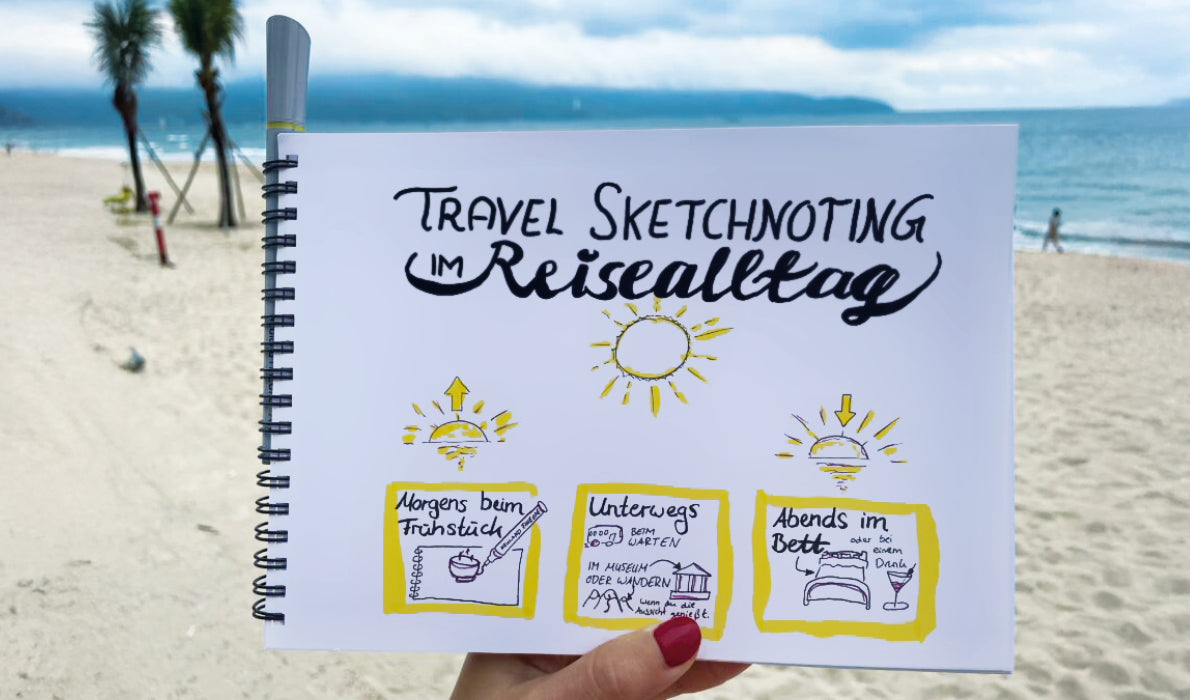 TRAVEL SKETCHNOTING
IM Reisealltag
Morgens beim
Frühstück
Unterwegs
BEIM
WARTEN
IM MUSEUM
ODER WANDERN
wenn du die
Aussicht genießt.
Abends im
Bett
oder bei
einem
Drink